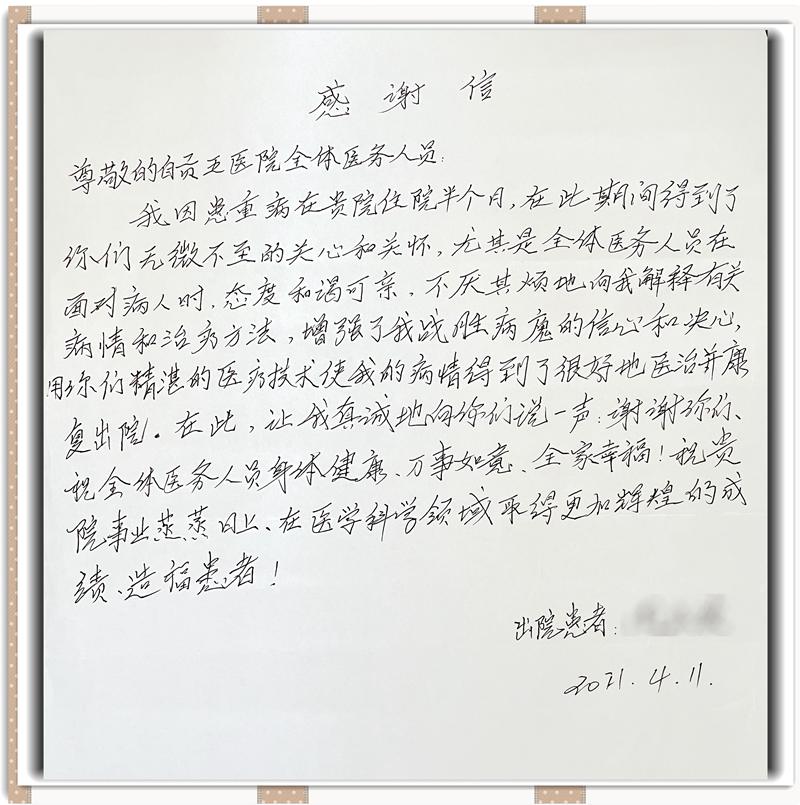 感谢信
尊敬的自贡五医院全体医务人员:
我因患重病在贵院住院半个月,在此期间得到了
你们无微不至的关心和关怀,尤其是全体医务人员在
面对病人时,态度和谒可亲,不厌其烦地向我解释有关
病情和治疗方法,增强了我战胜病魔的信心和决心,
用你们精湛的医疗技术使我的病情得到了很好地医治并康
复出院。在此,让我真诚地向你们说一声:谢谢你们、
祝全体医务人员身体健康、万事如意、全家幸福!祝贵
院事业蒸蒸日上、在医学科学领域取得更加辉煌的成
绩、造福患者!
出院患者:
2021.4.11.